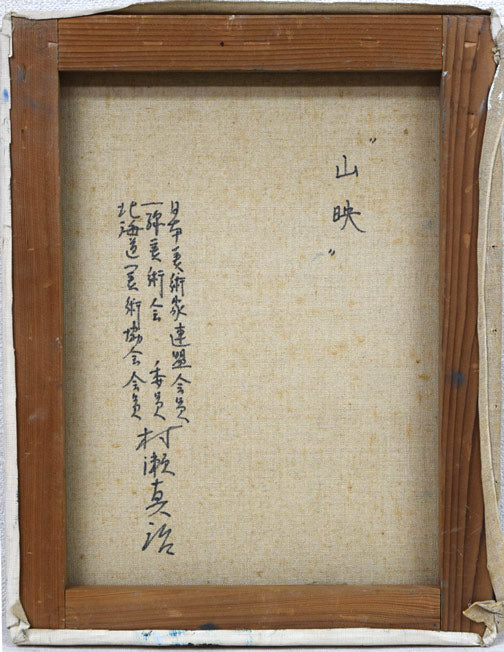 "山映"
日本美術家連盟会員
一線美術会 委員
北海道美術協会会員
村瀬真治